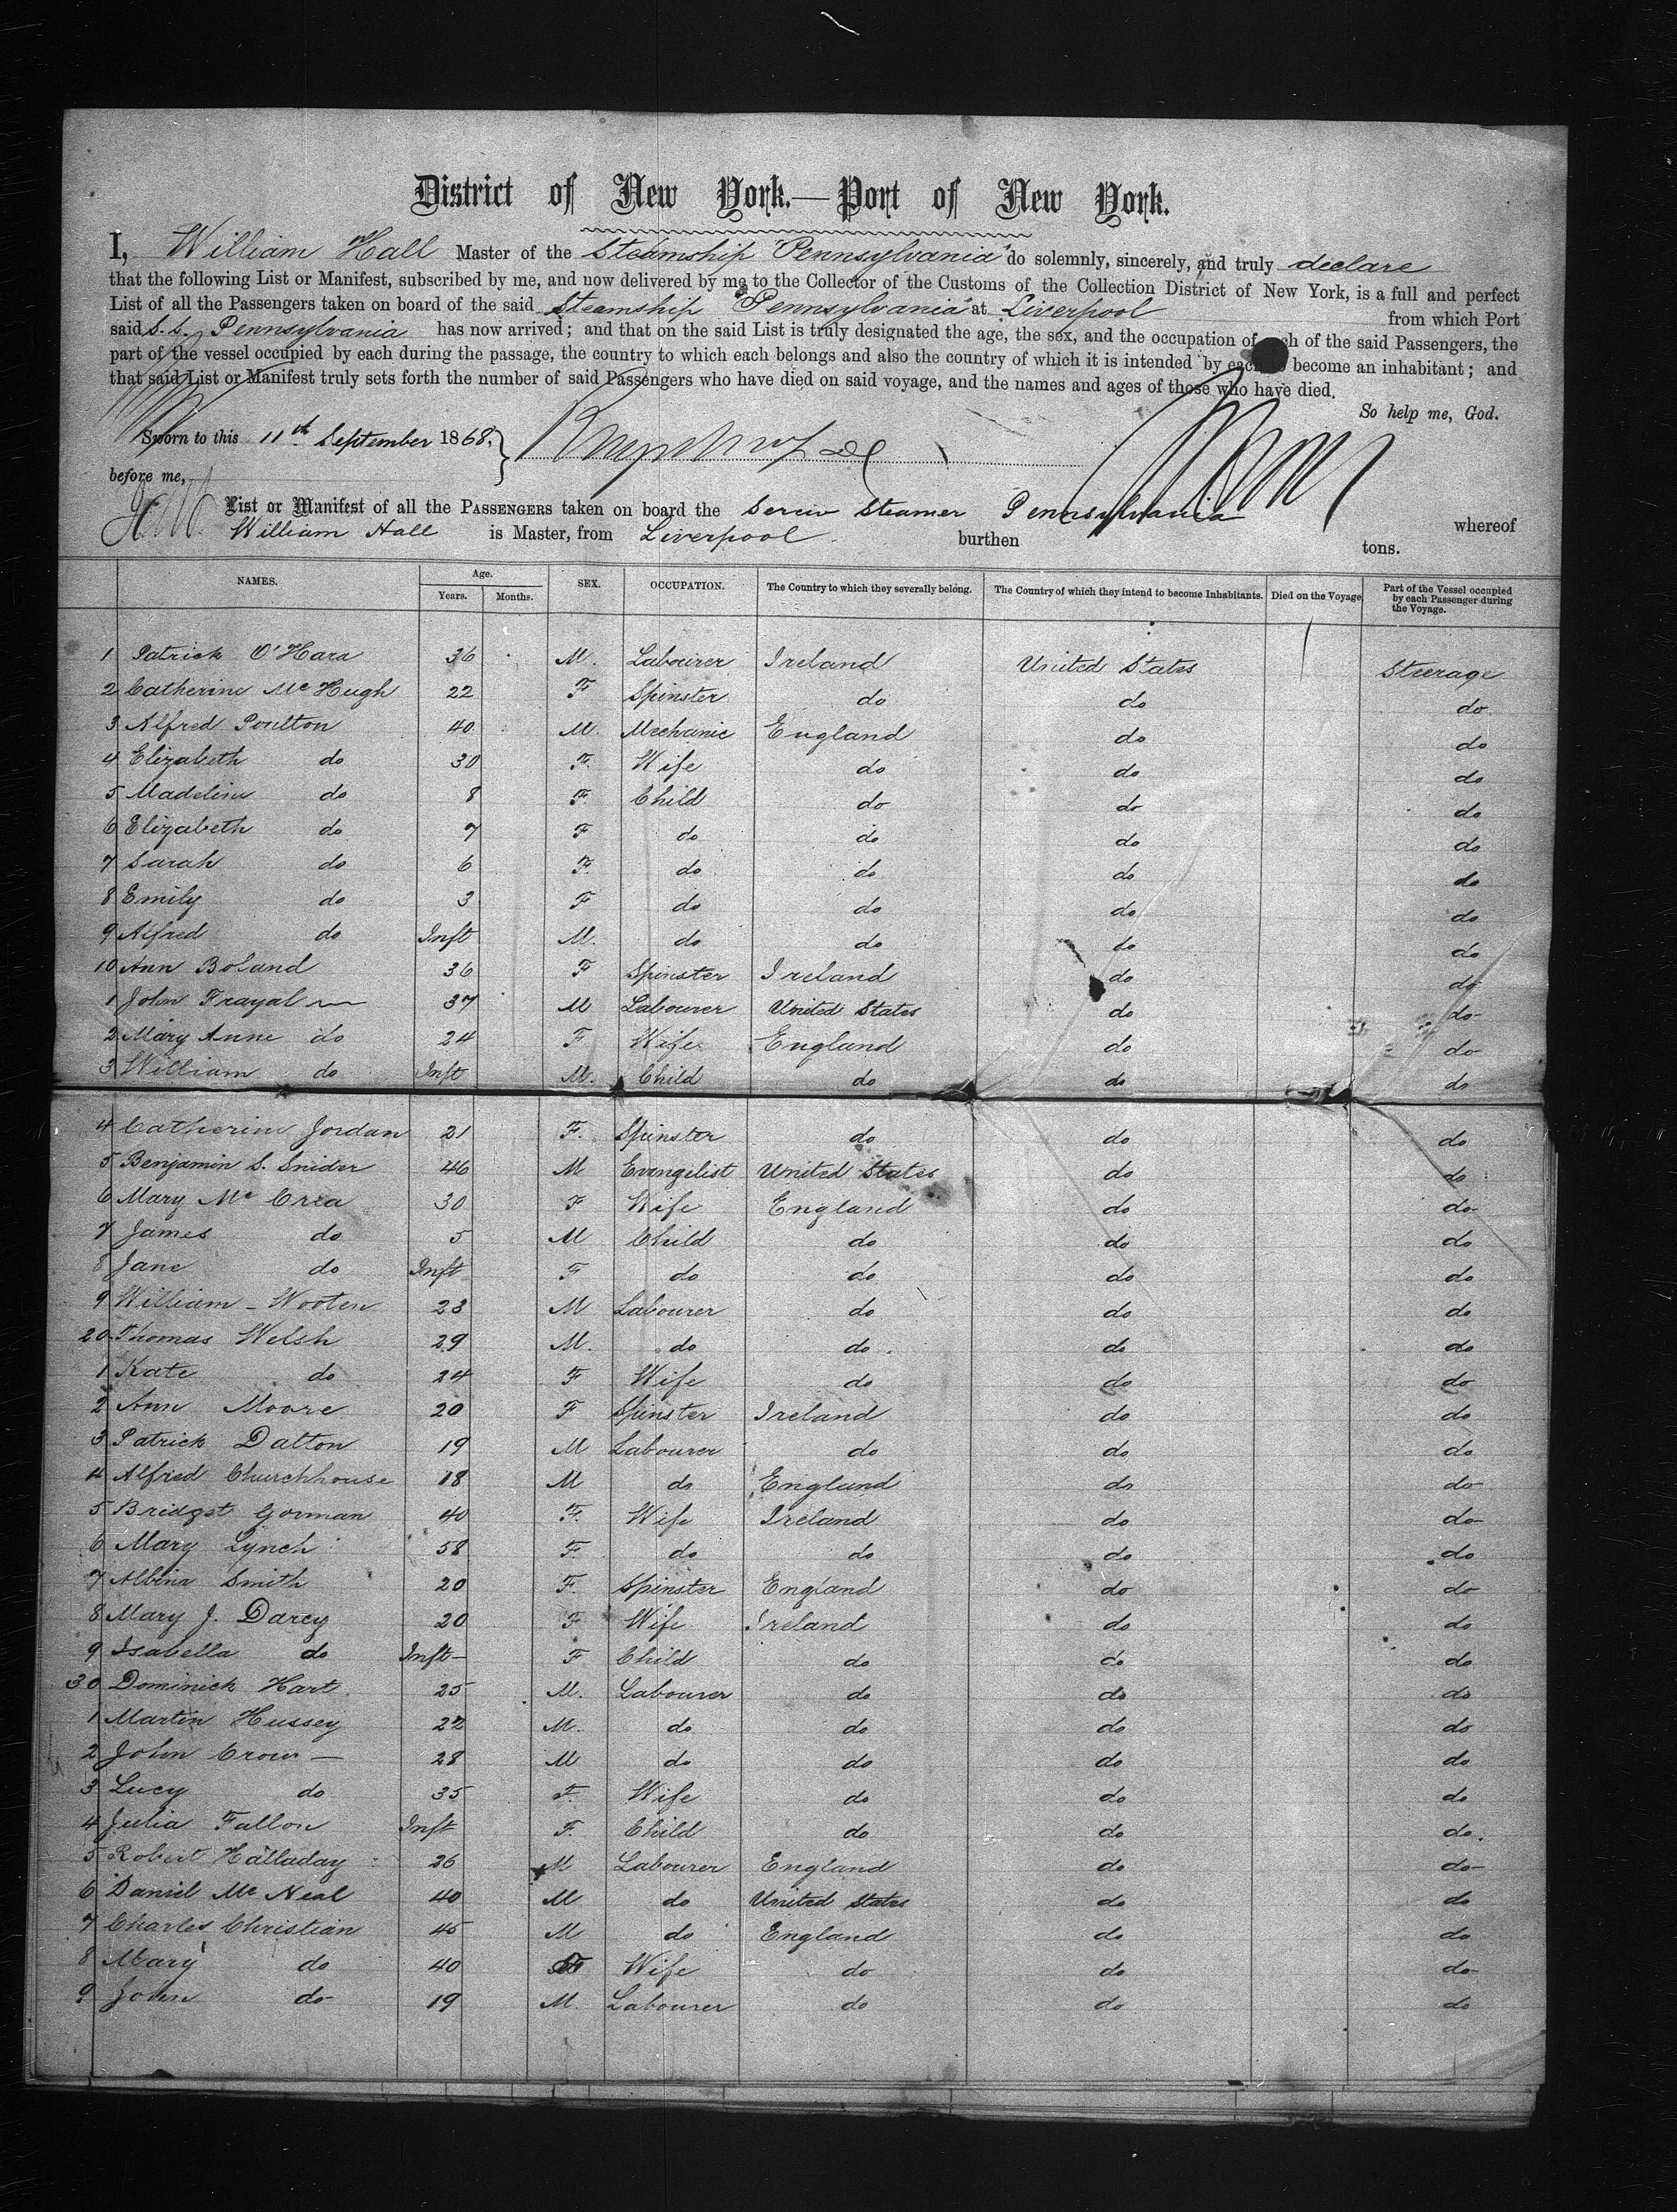 District of New York.—Port of New York.
I, William Hall Master of the Steamship "Pennsylvania" do solemnly, sincerely, and truly declare
that the following List or Manifest, subscribed by me, and now delivered by me to the Collector of the Customs of the Collection District of New York, is a full and perfect
List of all the Passengers taken on board of the said Steamship "Pennsylvania" at Liverpool from which Port
said S.S. Pennsylvania has now arrived; and that on the said List is truly designated the age, the sex, and the occupation of each of the said Passengers, the
part of the vessel occupied by each during the passage, the country to which each belongs and also the country of which it is intended by each to become an inhabitant; and
that said List or Manifest truly sets forth the number of said Passengers who have died on said voyage, and the names and ages of those who have died.
So help me, God.
Sworn to this 11th September 1868,
before me,
List or Manifest of all the PASSENGERS taken on board the Screw Steamer Pennsylvania whereof
William Hall is Master, from Liverpool. burthen tons.
NAMES. Age. Years. Months. SEX. OCCUPATION. The Country to which they severally belong. The Country of which they intend to become Inhabitants. Died on the Voyage Part of the Vessel occupied by each Passenger during the Voyage.
1 Patrick O'Hara 36 M. Labourer Ireland United States Steerage
2 Catherine McHugh 22 F Spinster do do do
3 Alfred Poulton 40 M. Mechanic England do do
4 Elizabeth do 30 F. Wife do do do
5 Madeline do 8 F. Child do do do
6 Elizabeth do 7 F do do do do
7 Sarah do 6 F. do do do do
8 Emily do 3 F do do do do
9 Alfred do Inft M. do do do do
10 Ann Boland 36 F Spinster Ireland do do
1 John Frayal 37 M Labourer United States do do
2 Mary Anne do 24 F Wife England do do
3 William do Inft M. Child do do do
4 Catherine Jordan 21 F. Spinster do do do
5 Benjamin S. Snider 46 M Evangelist United States do do
6 Mary McCrea 30 F Wife England do do
7 James do 5 M Child do do do
8 Jane do Inft F do do do do
9 William Wooten 23 M Labourer do do do
20 Thomas Welsh 29 M. do do do do
1 Kate do 24 F Wife do do do
2 Ann Moore 20 F Spinster Ireland do do
3 Patrick Dalton 19 M Labourer do do do
4 Alfred Churchhouse 18 M do England do do
5 Bridget Gorman 40 F. Wife Ireland do do
6 Mary Lynch 58 F. do do do do
7 Albina Smith 20 F. Spinster England do do
8 Mary J. Darcy 20 F Wife Ireland do do
9 Isabella do Inft F Child do do do
30 Dominick Hart 25 M. Labourer do do do
1 Martin Hussey 22 M. do do do do
2 John Crow 28 M do do do do
3 Lucy do 35 F. Wife do do do
4 Julia Fallon Inft F. Child do do do.
5 Robert Halladay 26 M Labourer England do do
6 Daniel McNeal 40 M do United States do do
7 Charles Christian 45 M do England do do
8 Mary do 40 F Wife do do do
9 John do 19 M. Labourer do do do